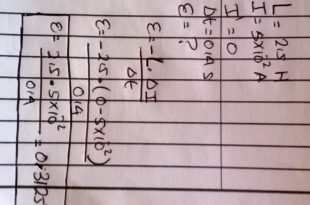 L = 2,5 H
I = 5x10² A
I = 0
Δt = 0,4 s
ε = ?
ε = -L . ΔI
Δt
ε = -2,5 . (0 - 5x10⁻²)
0,4
ε = 2,5 . 5x10⁻² = 0,3125
0,4